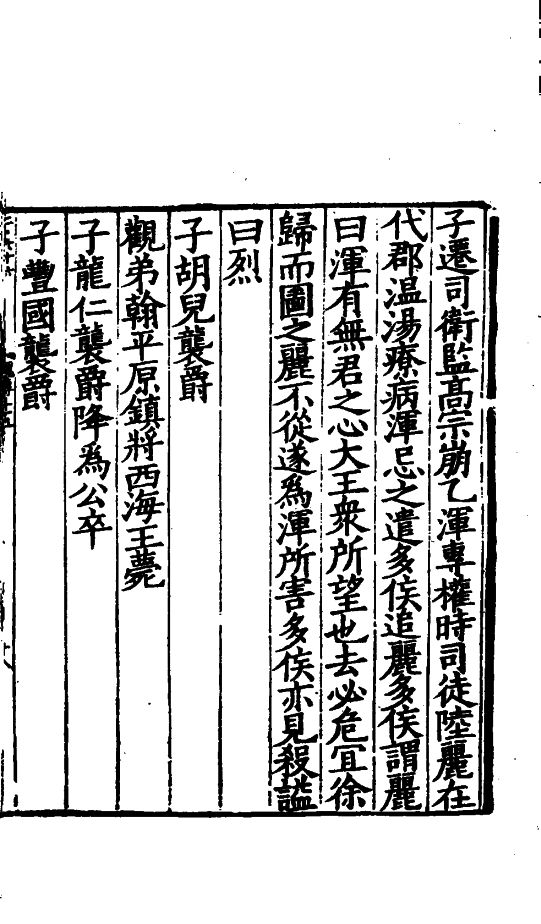 子遷司衛監髙宗崩乙渾專權時司徒陸麗在
代郡温湯療病渾忌之遣多侯追麗多侯謂麗
曰渾有無君之心大王衆所望也去必危宜徐
歸而圖之麗不從遂爲渾所害多侯亦見殺謚
曰烈
子胡兒襲爵
觀弟翰平原鎮將西海王薨
子龍仁襲爵降爲公卒
子豐國襲爵